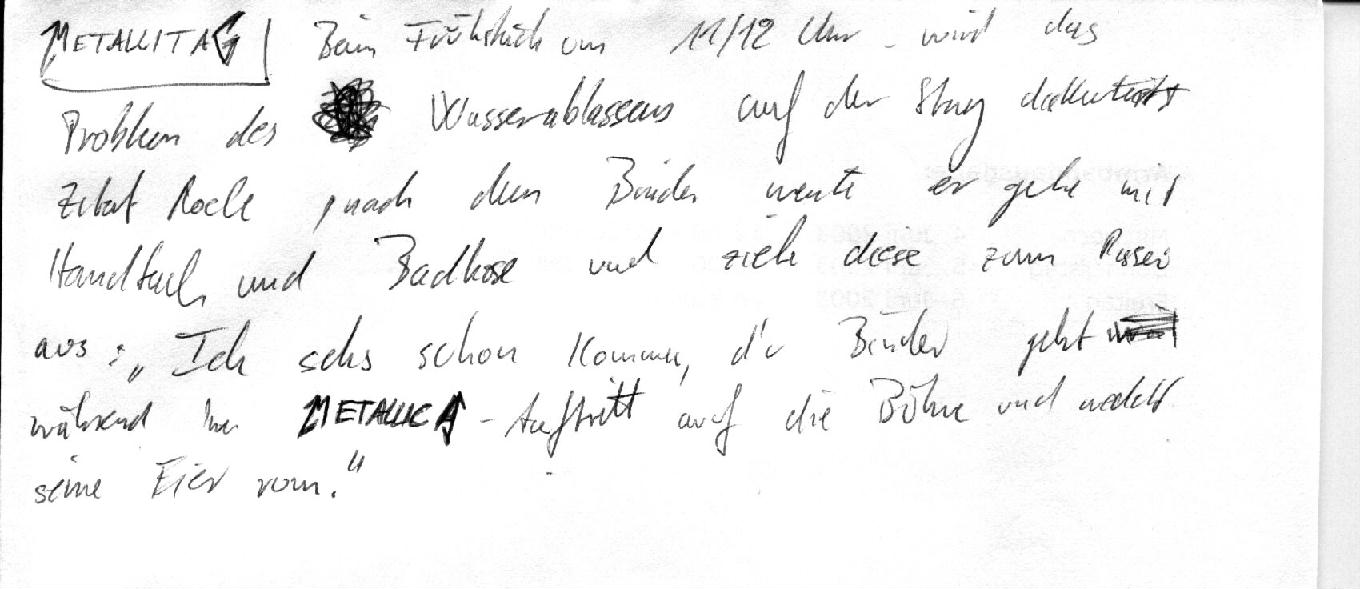 METALLITAG Beim Frühstück um 11/12 Uhr wird das
Problem des Wasserablassens auf der
Zitat nach dem Binder meinte er gehe mit
Handtuch und Badhose und zieh diese zum
aus: „Ich sehs schon kommen, d'r Binder geht
während METALLICA-Auftritt auf die Bühne und wedelt
seine Eier rum."